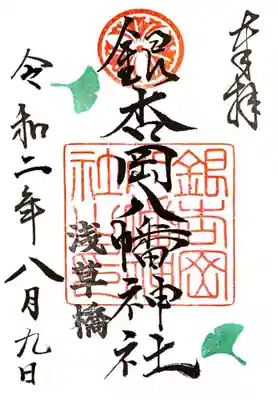 奉拝
銀杏岡八幡神社
浅草橋
銀杏岡八幡神社印
令和二年八月九日